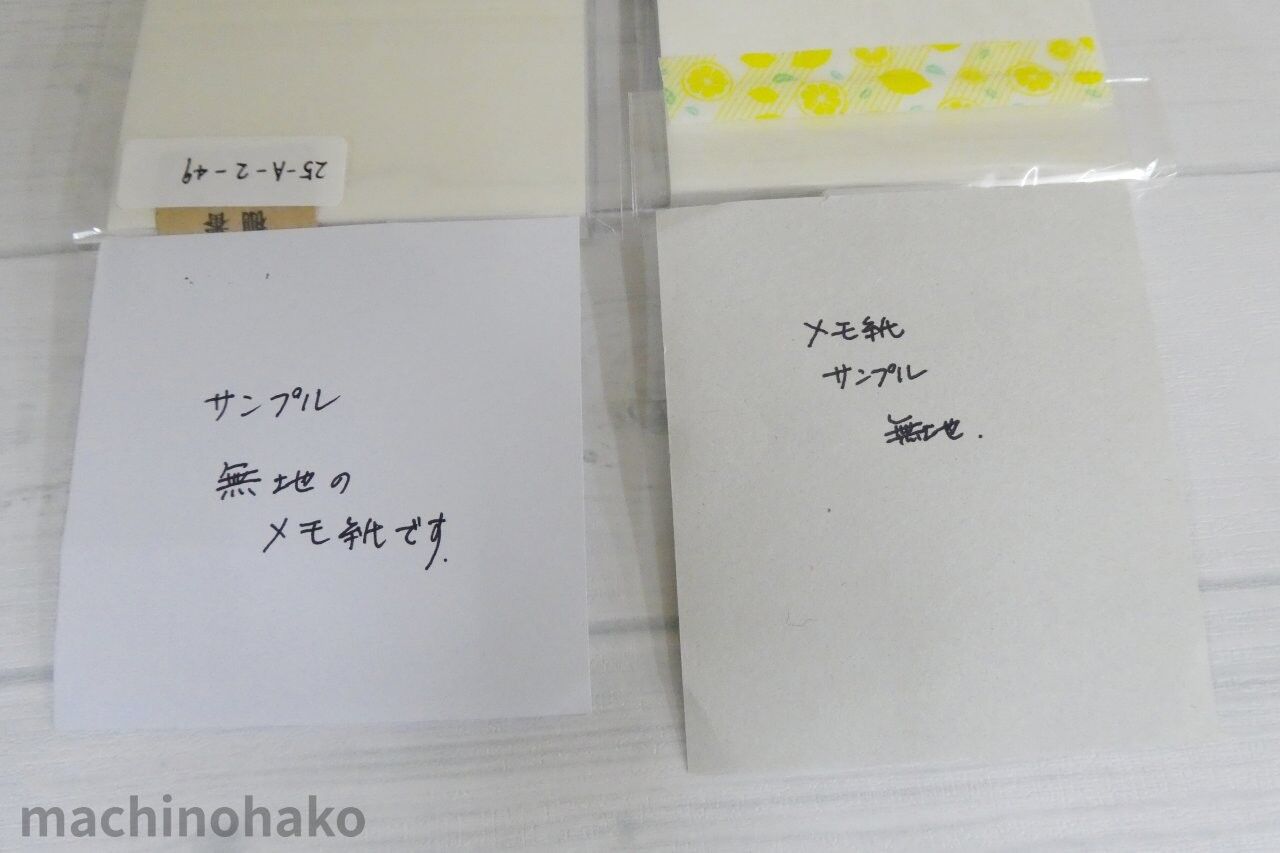 25-A-2-49
棚番
サンプル
無地の
メモ紙です.
メモ紙
サンプル
無地.
machinohako